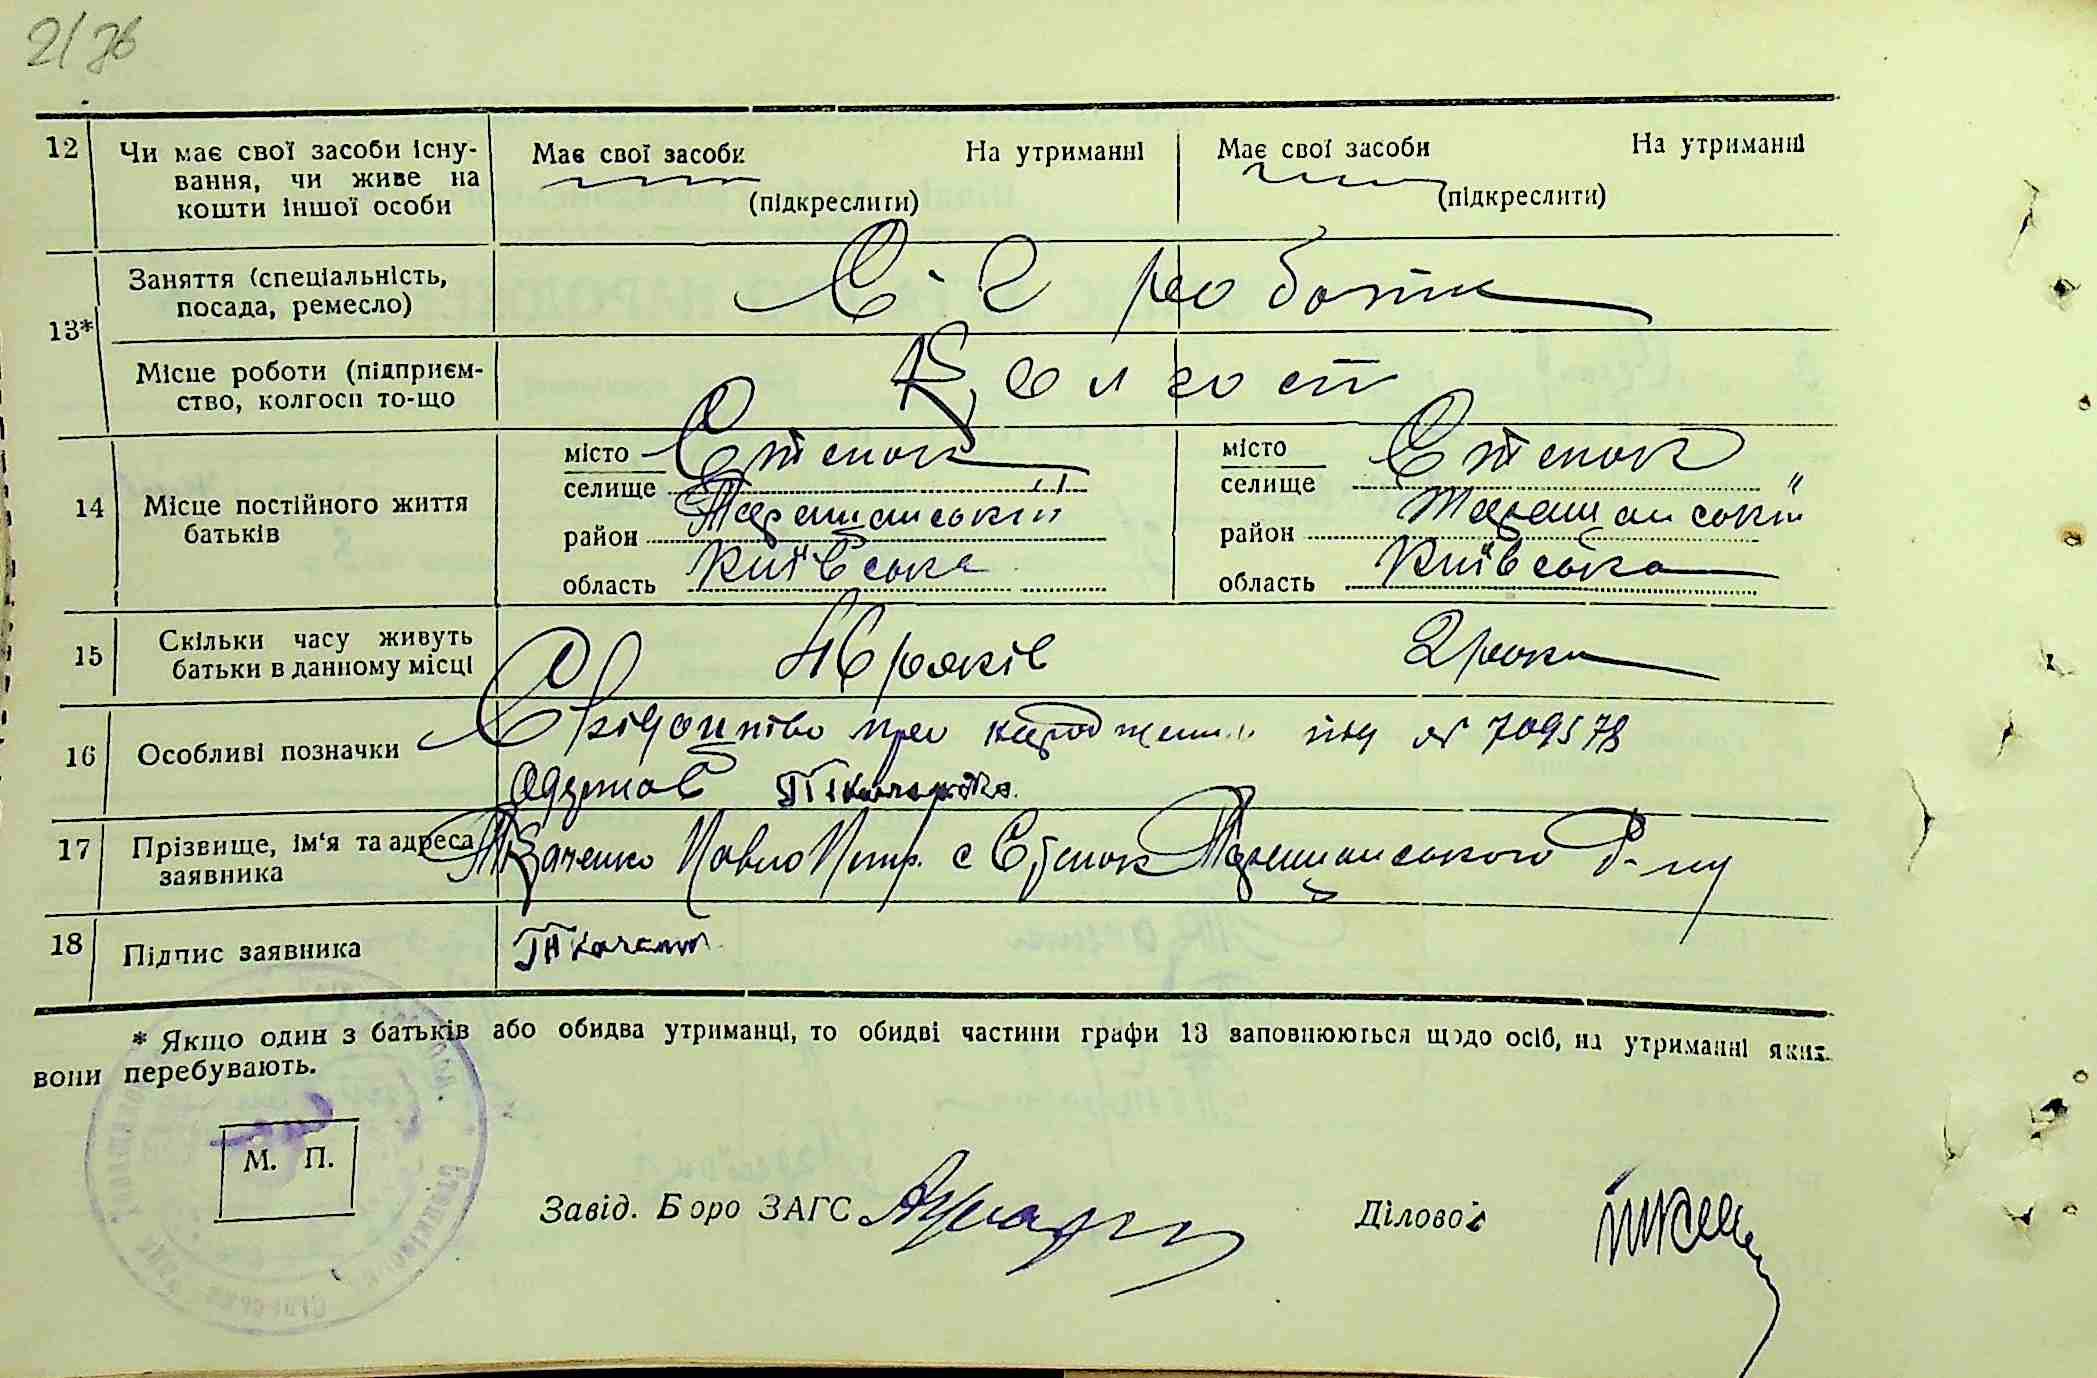 2/зв
12 Чи має свої засоби існу-
вання, чи живе на
кошти іншої особи
Має свої засоби На утриманні
(підкреслити)
Має свої засоби На утриманні
(підкреслити)
13*
Заняття (спеціальність,
посада, ремесло)
С-г работи
Місце роботи (підприєм-
ство, колгосп то-що
Колгосп
14 Місце постійного життя
батьків
місто
селище Стенок
район Таращанський
область Київська
місто
селище Стенок
район Таращанський
область Київська
15 Скільки часу живуть
батьки в данному місці
років
2 роки
16 Особливі позначки
Свідоцтво про народження № 709578
одержав Ткаченко
17 Прізвище, ім'я та адреса
заявника
Ткаченко Павло Петр. с Стенок Таращанського р-ну
18 Підпис заявника
Ткаченко
* Якщо один з батьків або обидва утриманці, то обидві частини графи 13 заповнюються щодо осіб, на утриманні яких
вони перебувають.
М. П.
Завід. Бюро ЗАГС
Діловод